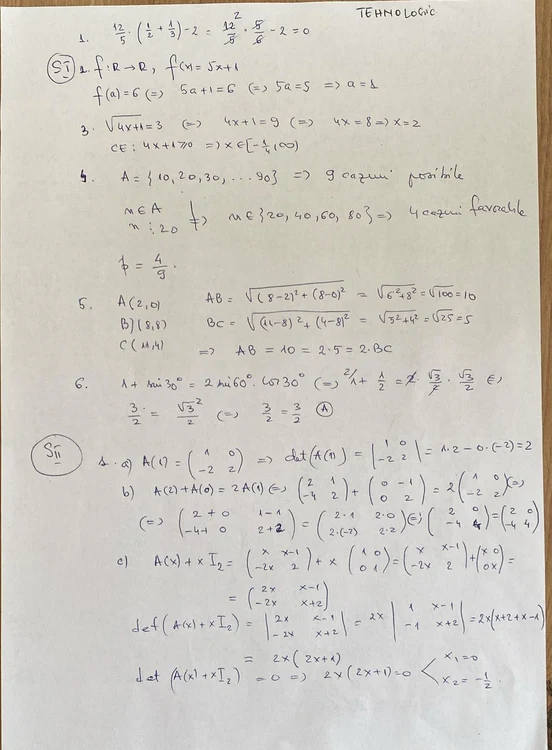 TEHNOLOGIC
1. 12/5 · (1/2 + 1/3) - 2 = 12/5 · 5/6 - 2 = 0
2
SI
2. f: R → R, f(x) = 5x+1
f(a) = 6 (=) 5a+1 = 6 (=) 5a = 5 => a = 1
3. √(4x+1) = 3 (=) 4x+1 = 9 (=) 4x = 8 => x = 2
CE: 4x+1 ≥ 0 => x ∈ [-1/4, ∞)
4. A = {10, 20, 30, ... 90} => 9 cazuri posibile
n ∈ A
n ⋮ 20 => n ∈ {20, 40, 60, 80} => 4 cazuri favorabile
p = 4/9.
5. A(2,0) AB = √((8-2)² + (8-0)²) = √(6²+8²) = √100 = 10
B(8,8) BC = √((11-8)² + (4-8)²) = √(3²+4²) = √25 = 5
C(11,4) => AB = 10 = 2·5 = 2·BC
6. 1 + sin 30° = 2 sin 60° · cos 30° (=) 2/1 + 1/2 = 2 · √3/2 · √3/2 (=)
3/2 = √3²/2 (=) 3/2 = 3/2 (A)
SII
1. a) A(1) = (1 0 / -2 2) => det(A(1)) = |1 0 / -2 2| = 1·2 - 0·(-2) = 2
b) A(2) + A(0) = 2A(1) (=) (2 1 / -4 2) + (0 -1 / 0 2) = 2(1 0 / -2 2) (=)
(=) (2+0 1-1 / -4+0 2+2) = (2·1 2·0 / 2·(-2) 2·2) (=) (2 0 / -4 4) = (2 0 / -4 4)
c) A(x) + xI₂ = (x x-1 / -2x 2) + x (1 0 / 0 1) = (x x-1 / -2x 2) + (x 0 / 0 x) =
= (2x x-1 / -2x x+2)
det(A(x) + xI₂) = |2x x-1 / -2x x+2| = 2x |1 x-1 / -1 x+2| = 2x(x+2+x-1)
= 2x(2x+1)
det(A(x) + xI₂) = 0 => 2x(2x+1) = 0 < x₁ = 0
x₂ = -1/2.